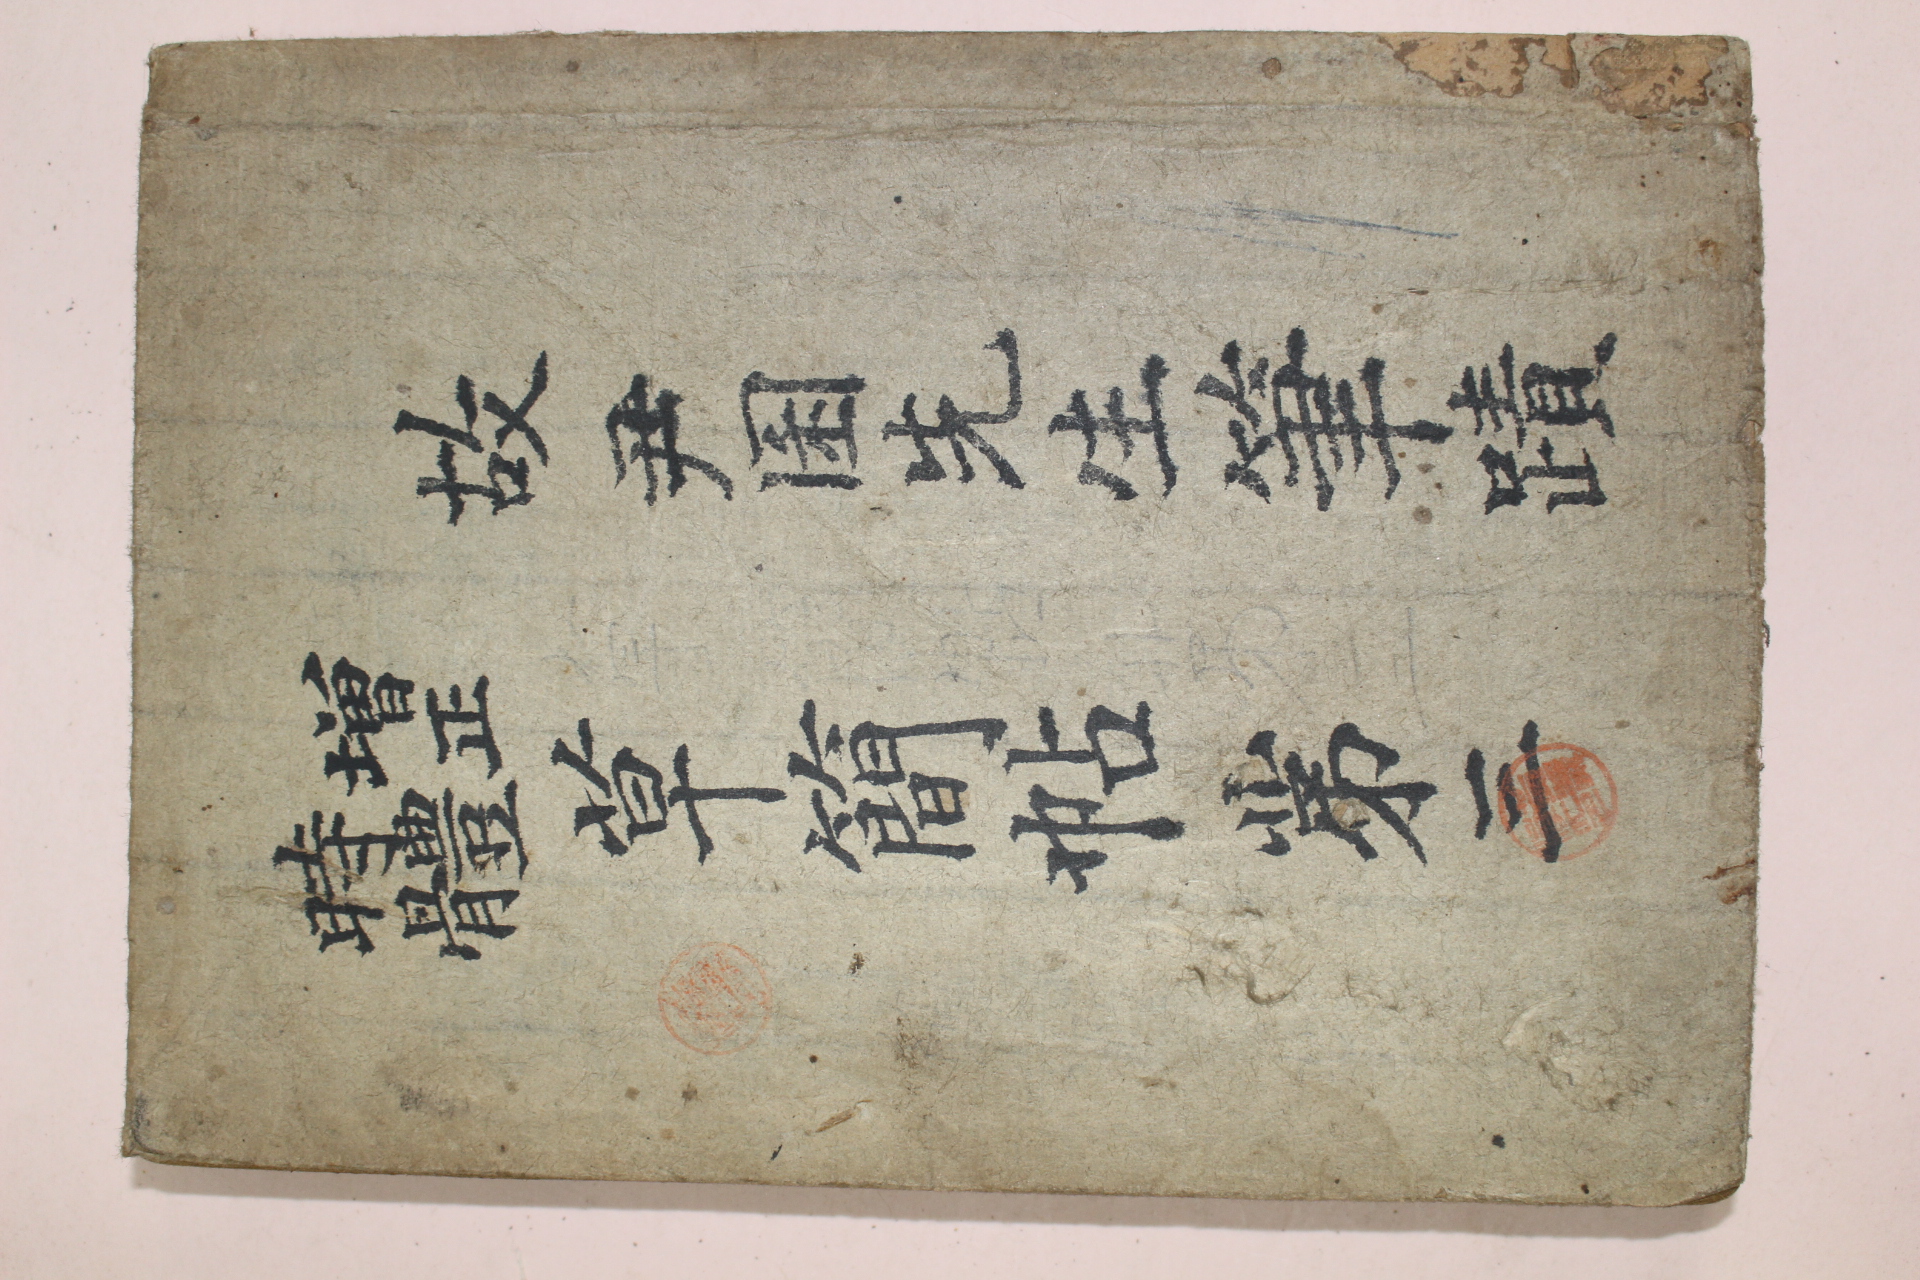 故尹圂先生筆蹟
增正
時體
草簡帖 第三